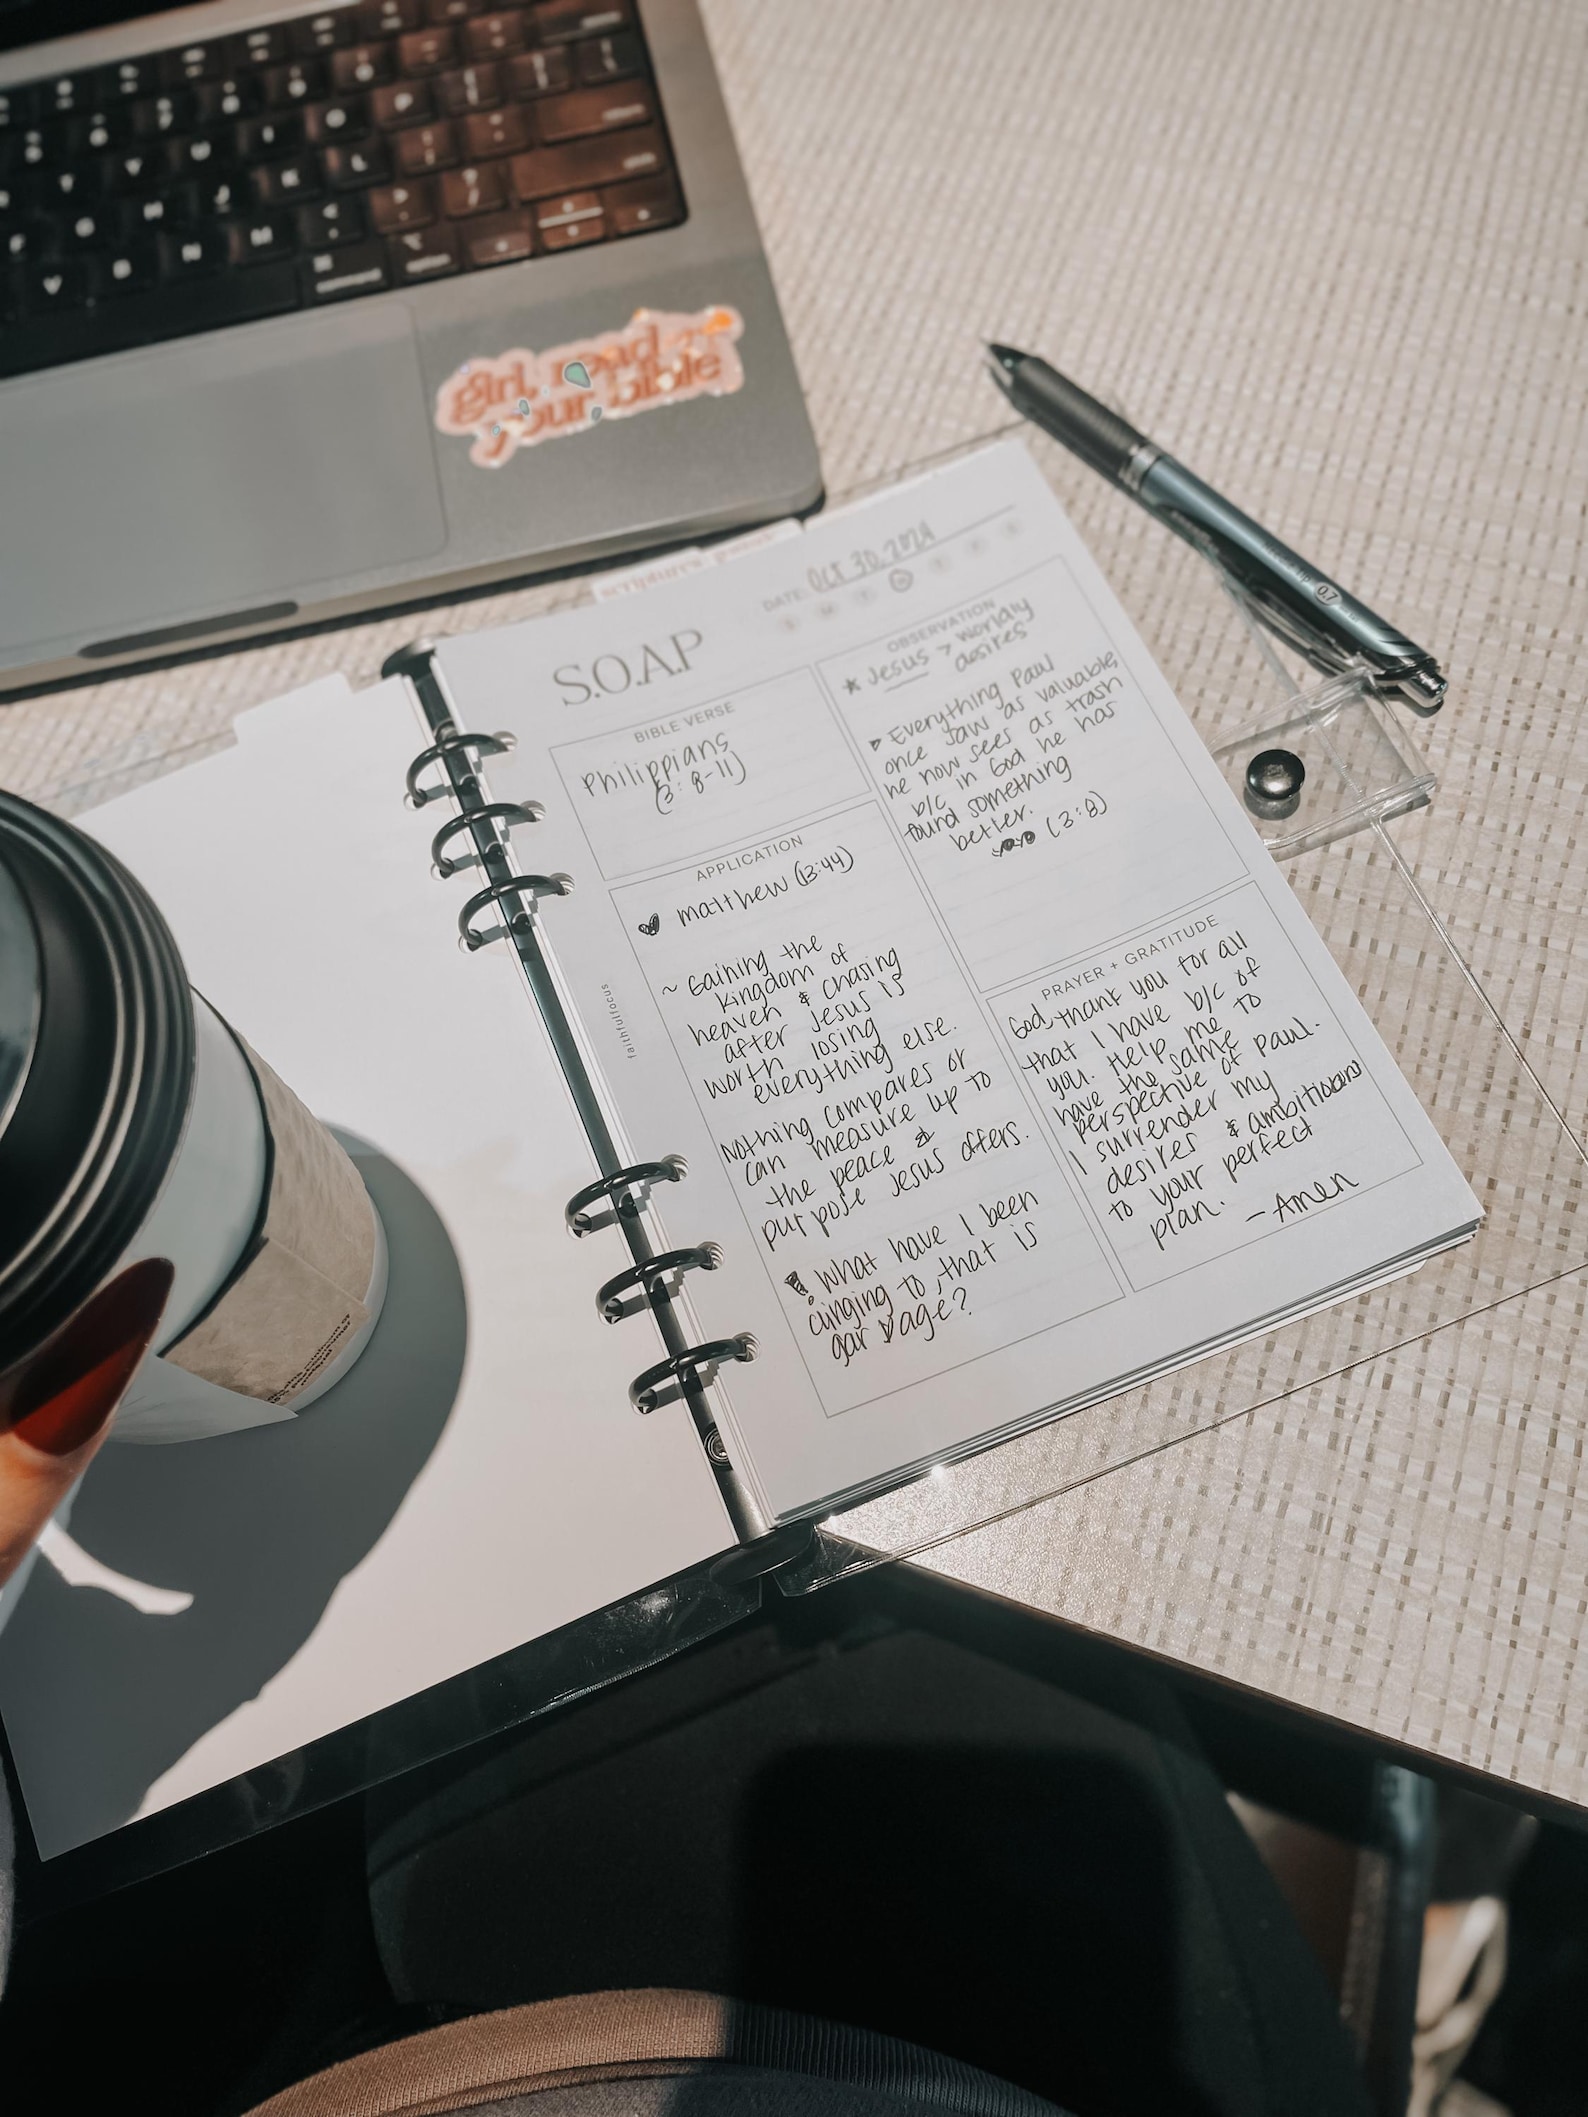 girl, read
your bible
0.7
DATE: OCT 30, 2024
S.O.A.P
BIBLE VERSE
Philippians
(3:8-11)
OBSERVATION
★ Jesus > worldly
desires
Everything Paul
once saw as valuable,
he now sees as trash
b/c in God he has
found something
better.
(3:8)
APPLICATION
matthew (13:44)
~ Gaining the
kingdom of
heaven & chasing
after Jesus is
worth losing
everything else.
Nothing compares or
can measure up to
the peace &
purpose Jesus offers.
! What have I been
clinging to, that is
garbage?
PRAYER + GRATITUDE
God, thank you for all
that I have b/c of
you. Help me to
have the same
perspective of Paul.
I surrender my
desires & ambitions
to your perfect
plan.
- Amen
faithfulfocus